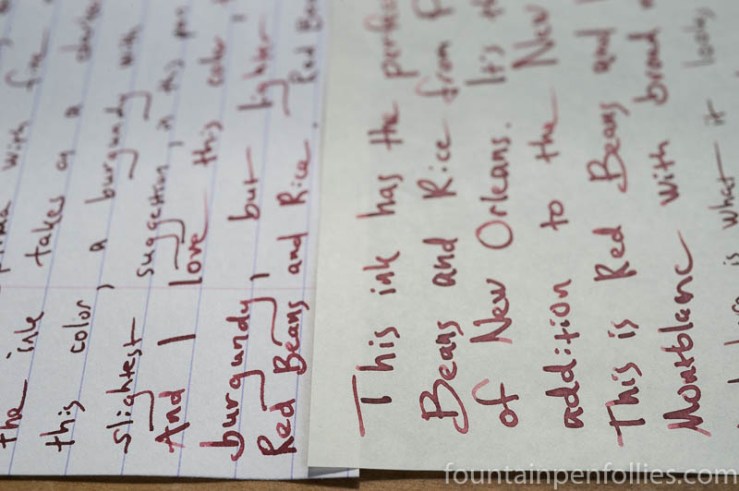 the ink takes on a
this color, a burgundy with
slightest suggestion, in this pen
And I love this color
burgundy, but lighter
Red Beans and Rice. Red Be
This ink has the perfec
Beans and Rice from
of New Orleans. It's th
addition to the New
This is Red Beans and
Montblanc with broad
is what it looks
fountainpenfollies.com